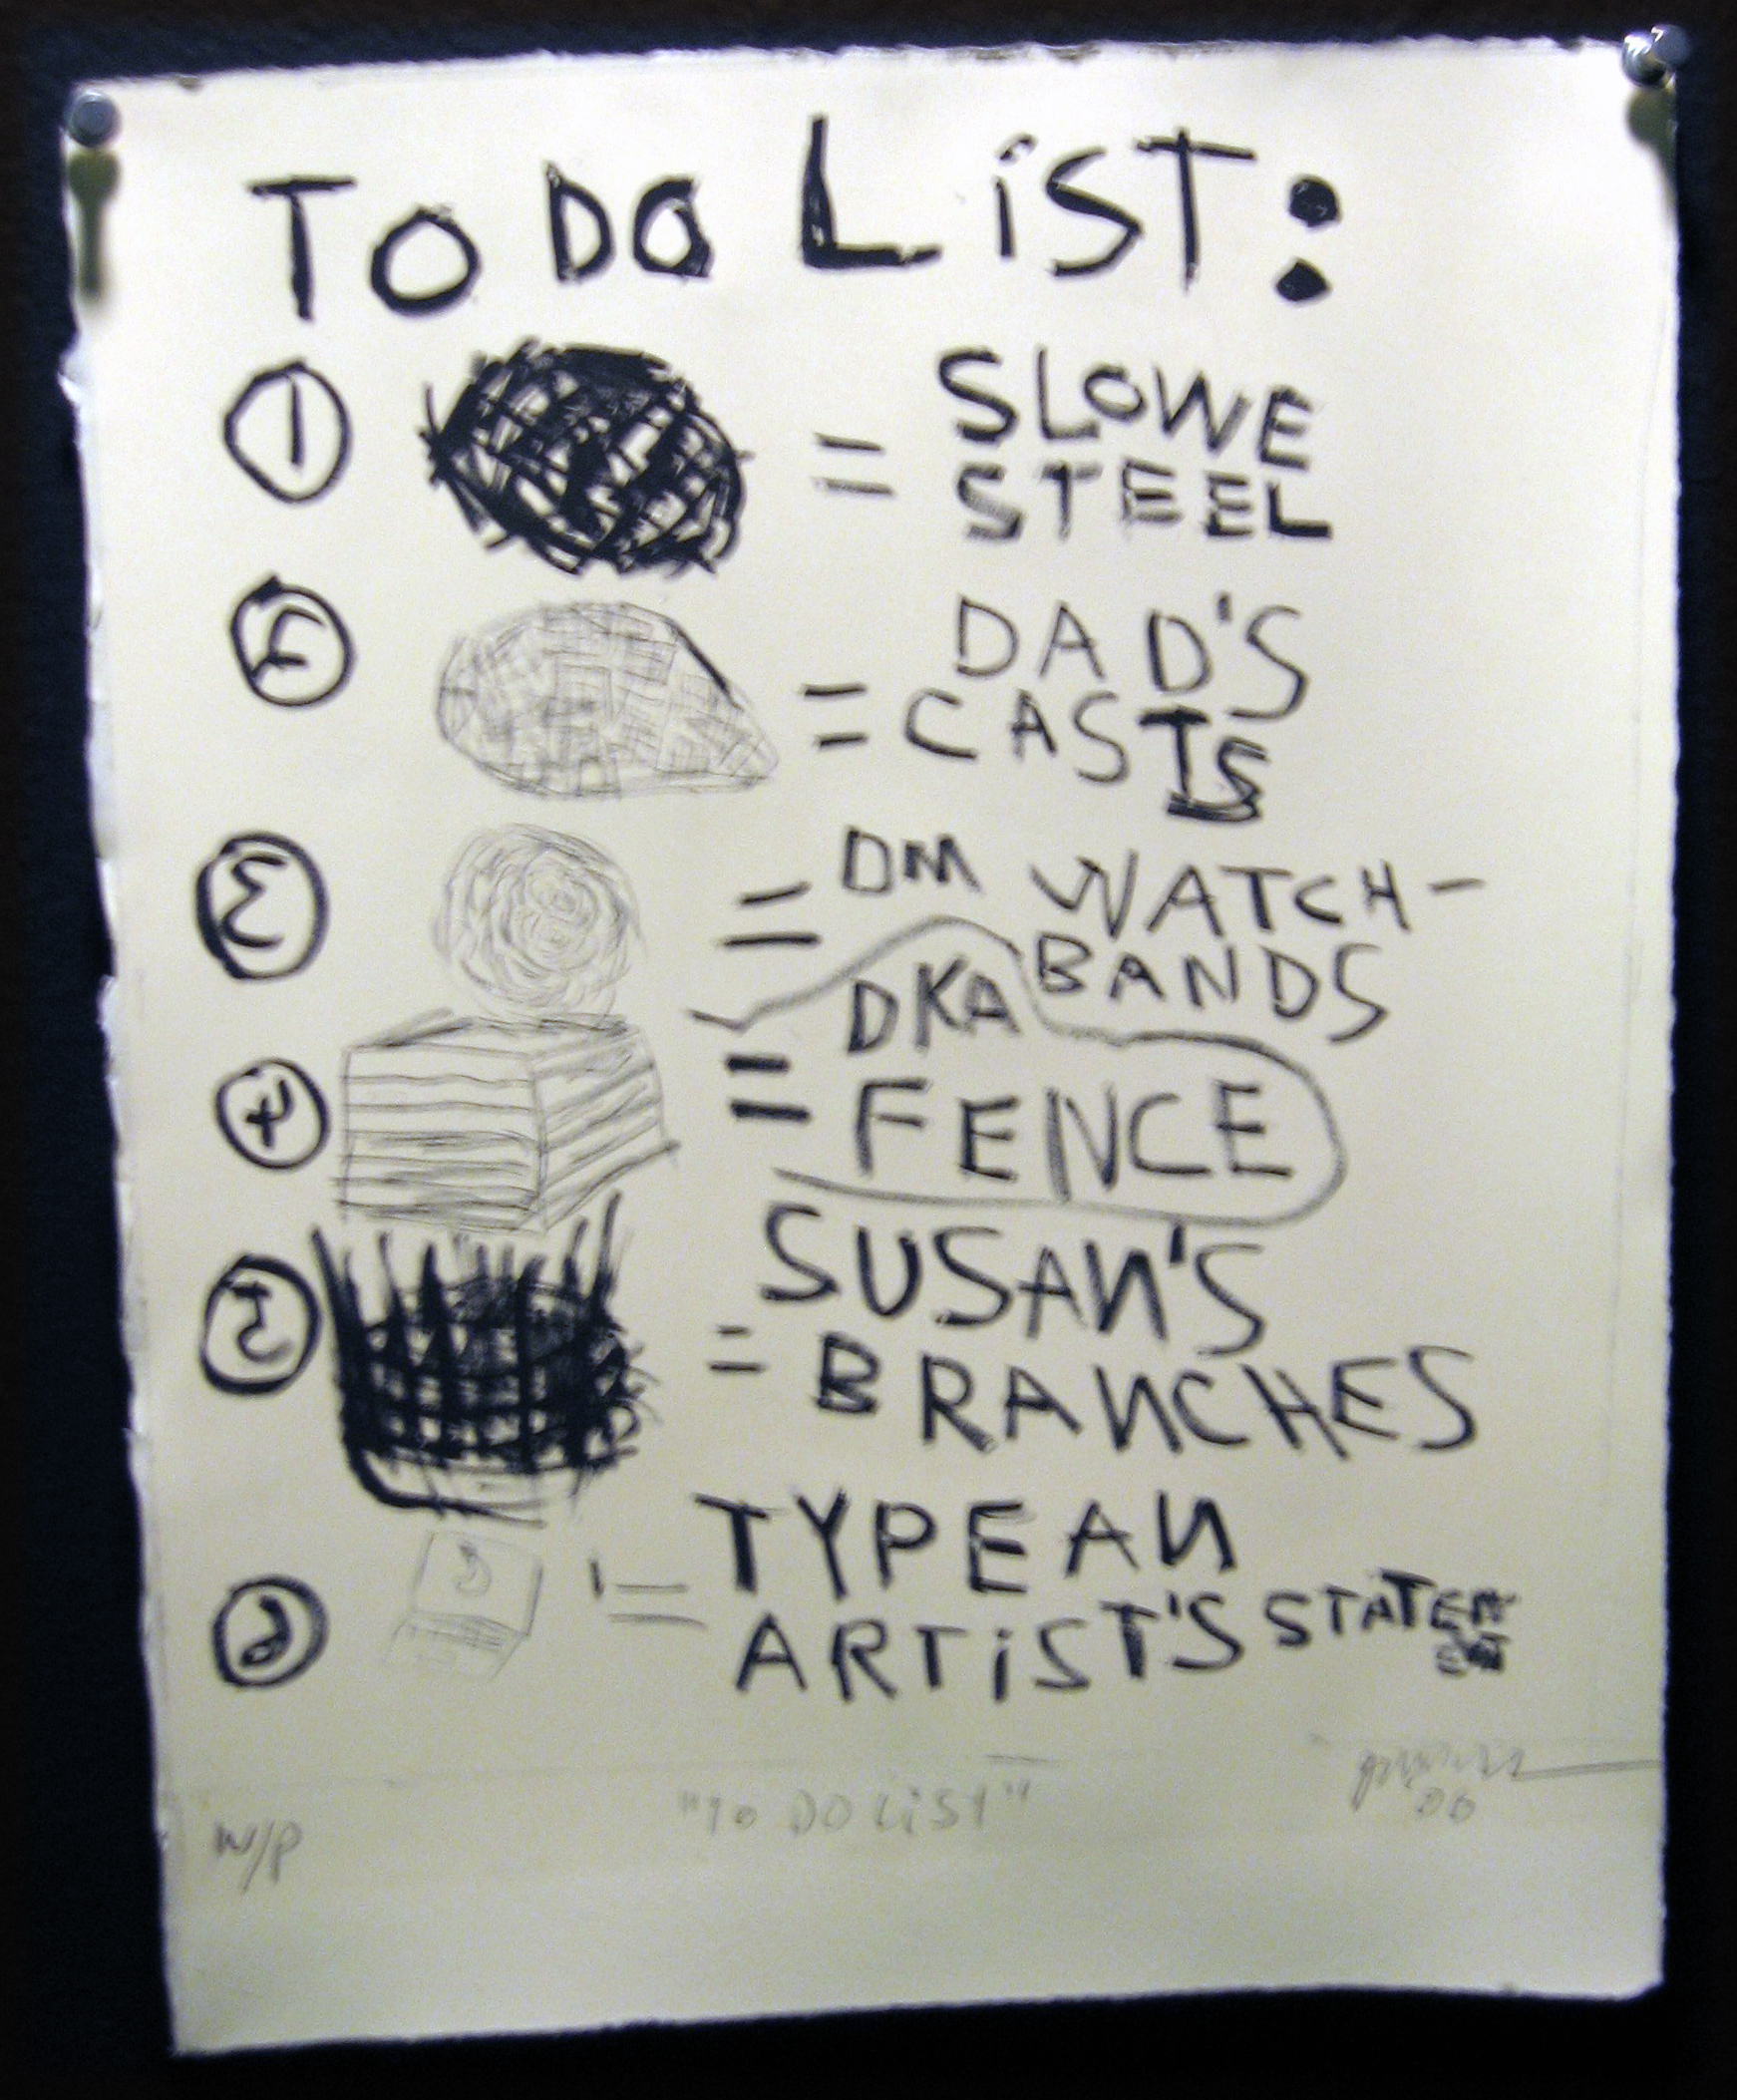 TO DO LiST:
1 = SLOWE
STEEL
2 = DAD'S
CASTS
3 = DM WATCH-
BANDS
4 = DKA
FENCE
5 = SUSAN'S
BRANCHES
6 = TYPE AN
ARTiST'S STATEM
ENT
W/P "TO DO LiST"